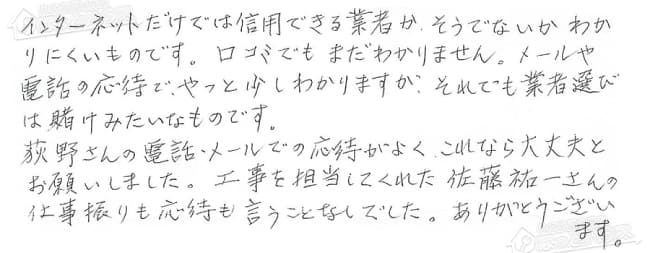 インターネットだけでは信用できる業者か、そうでないか わか
りにくいものです。口コミでも まだわかりません。メールや
電話の応待で、やっと少しわかりますが、それでも業者選び
は賭けみたいなものです。
荻野さんの電話・メールでの応待がよく、これなら大丈夫と
お願いしました。工事を担当してくれた 佐藤祐一さんの
仕事振りも応待も言うことなしでした。ありがとうござい
ます。